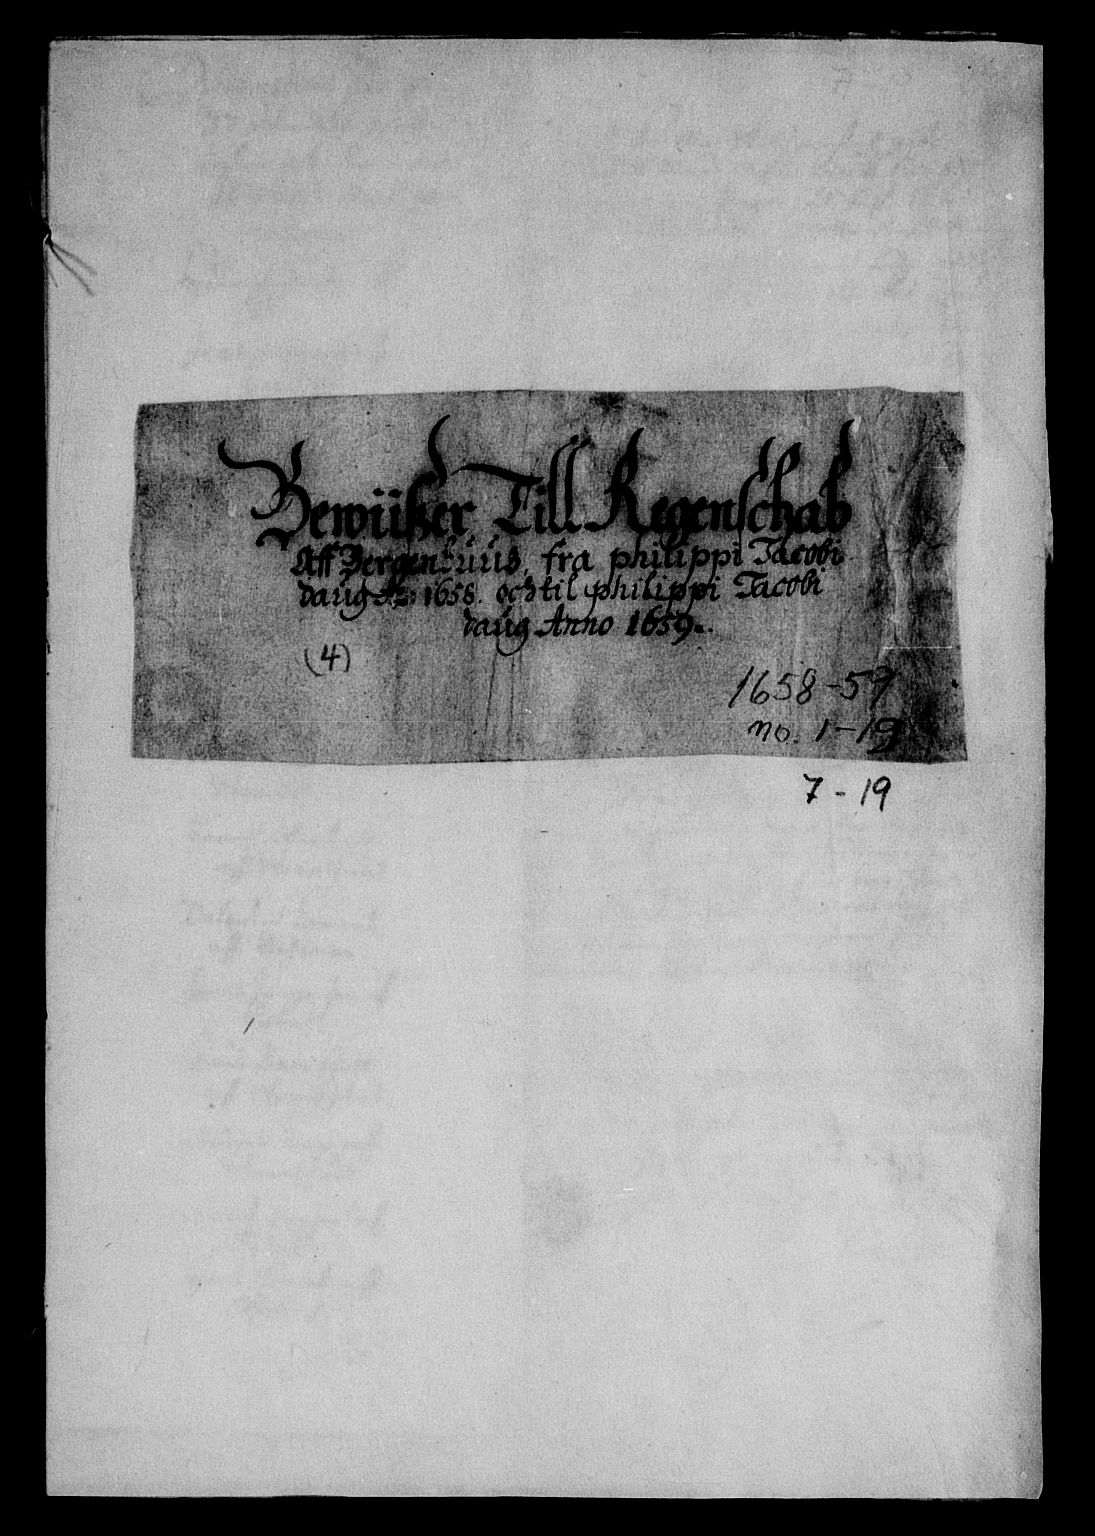 Bewüißer Till Regenschab
Aff Bergenhuus, fra philippi Jacobi
daug Ao: 1658. och til philippi Jacobi
daug Anno 1659.
(4)
1658-59
no. 1-19
7-19